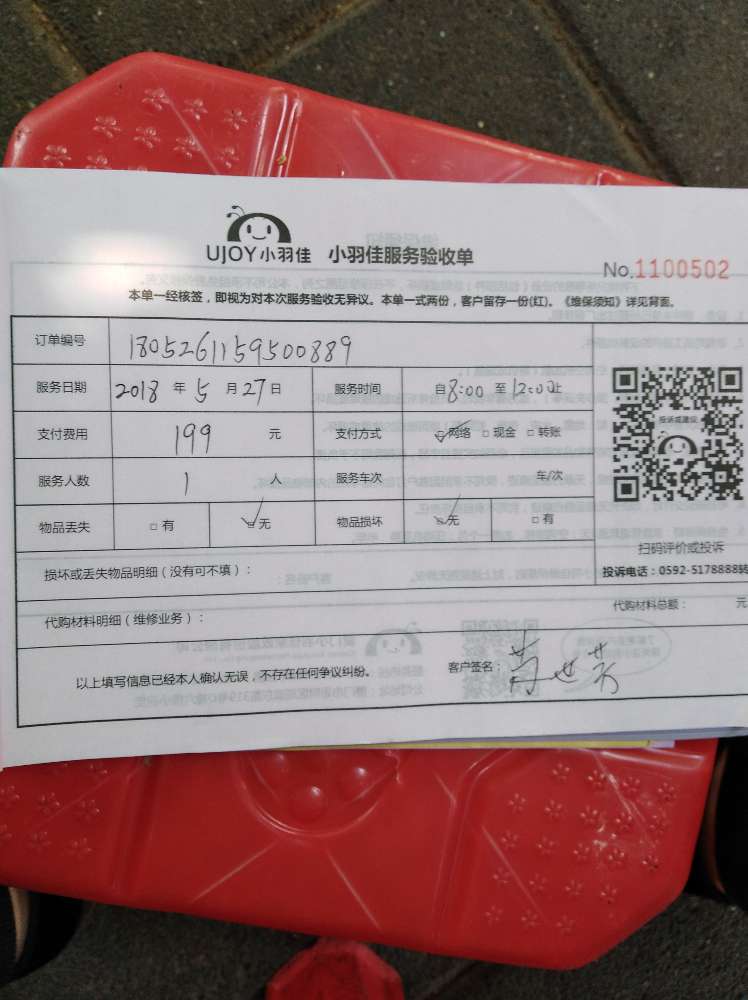 UJOY小羽佳 小羽佳服务验收单
No.1100502
本单一经核签，即视为对本次服务验收无异议。本单一式两份，客户留存一份(红)。《维保须知》详见背面。
订单编号 1805261159500889
服务日期 2018 年 5 月 27 日 服务时间 自 8:00 至 12:00 止
支付费用 199 元 支付方式 ☑网络 □现金 □转账
服务人数 1 人 服务车次 车/次
物品丢失 □有 ☑无 物品损坏 ☑无 □有
投诉或建议
扫码评价或投诉
投诉电话：0592-5178888转
损坏或丢失物品明细（没有可不填）：
代购材料明细（维修业务）： 代购材料总额： 元
以上填写信息已经本人确认无误，不存在任何争议纠纷。 客户签名：